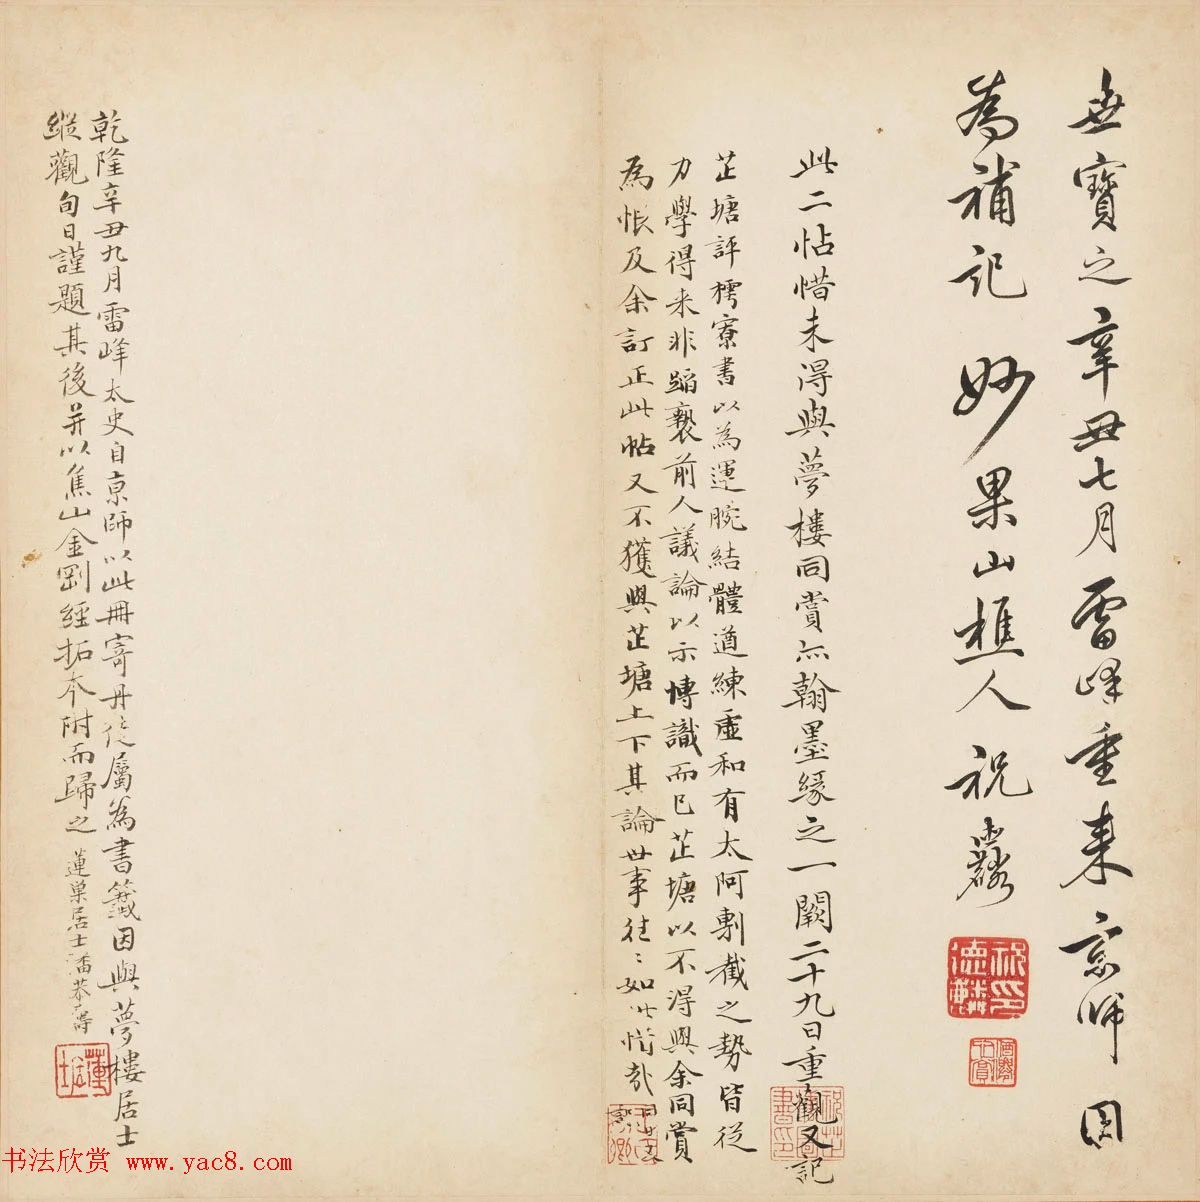 世寶之辛丑七月雷峰重来京师因
為補記 妙果山樵人祝
此二帖惜未得與夢樓同賞亦翰墨緣之一闕二十九日重觀又記
芷塘評樗寮書以為運腕結體遒練虛和有太阿剸截之勢皆從
力學得来非蹈褻前人議論以示博識而已芷塘以不得與余同賞
為恨及余訂正此帖又不獲與芷塘上下其論世事往往如此惜哉
乾隆辛丑九月雷峰太史自京師以此册寄丹徒屬為書籤因與夢樓居士
縱觀旬日謹題其後并以焦山金剛經拓本附而歸之 蓮巢居士潘恭壽
书法欣赏 www.yac8.com